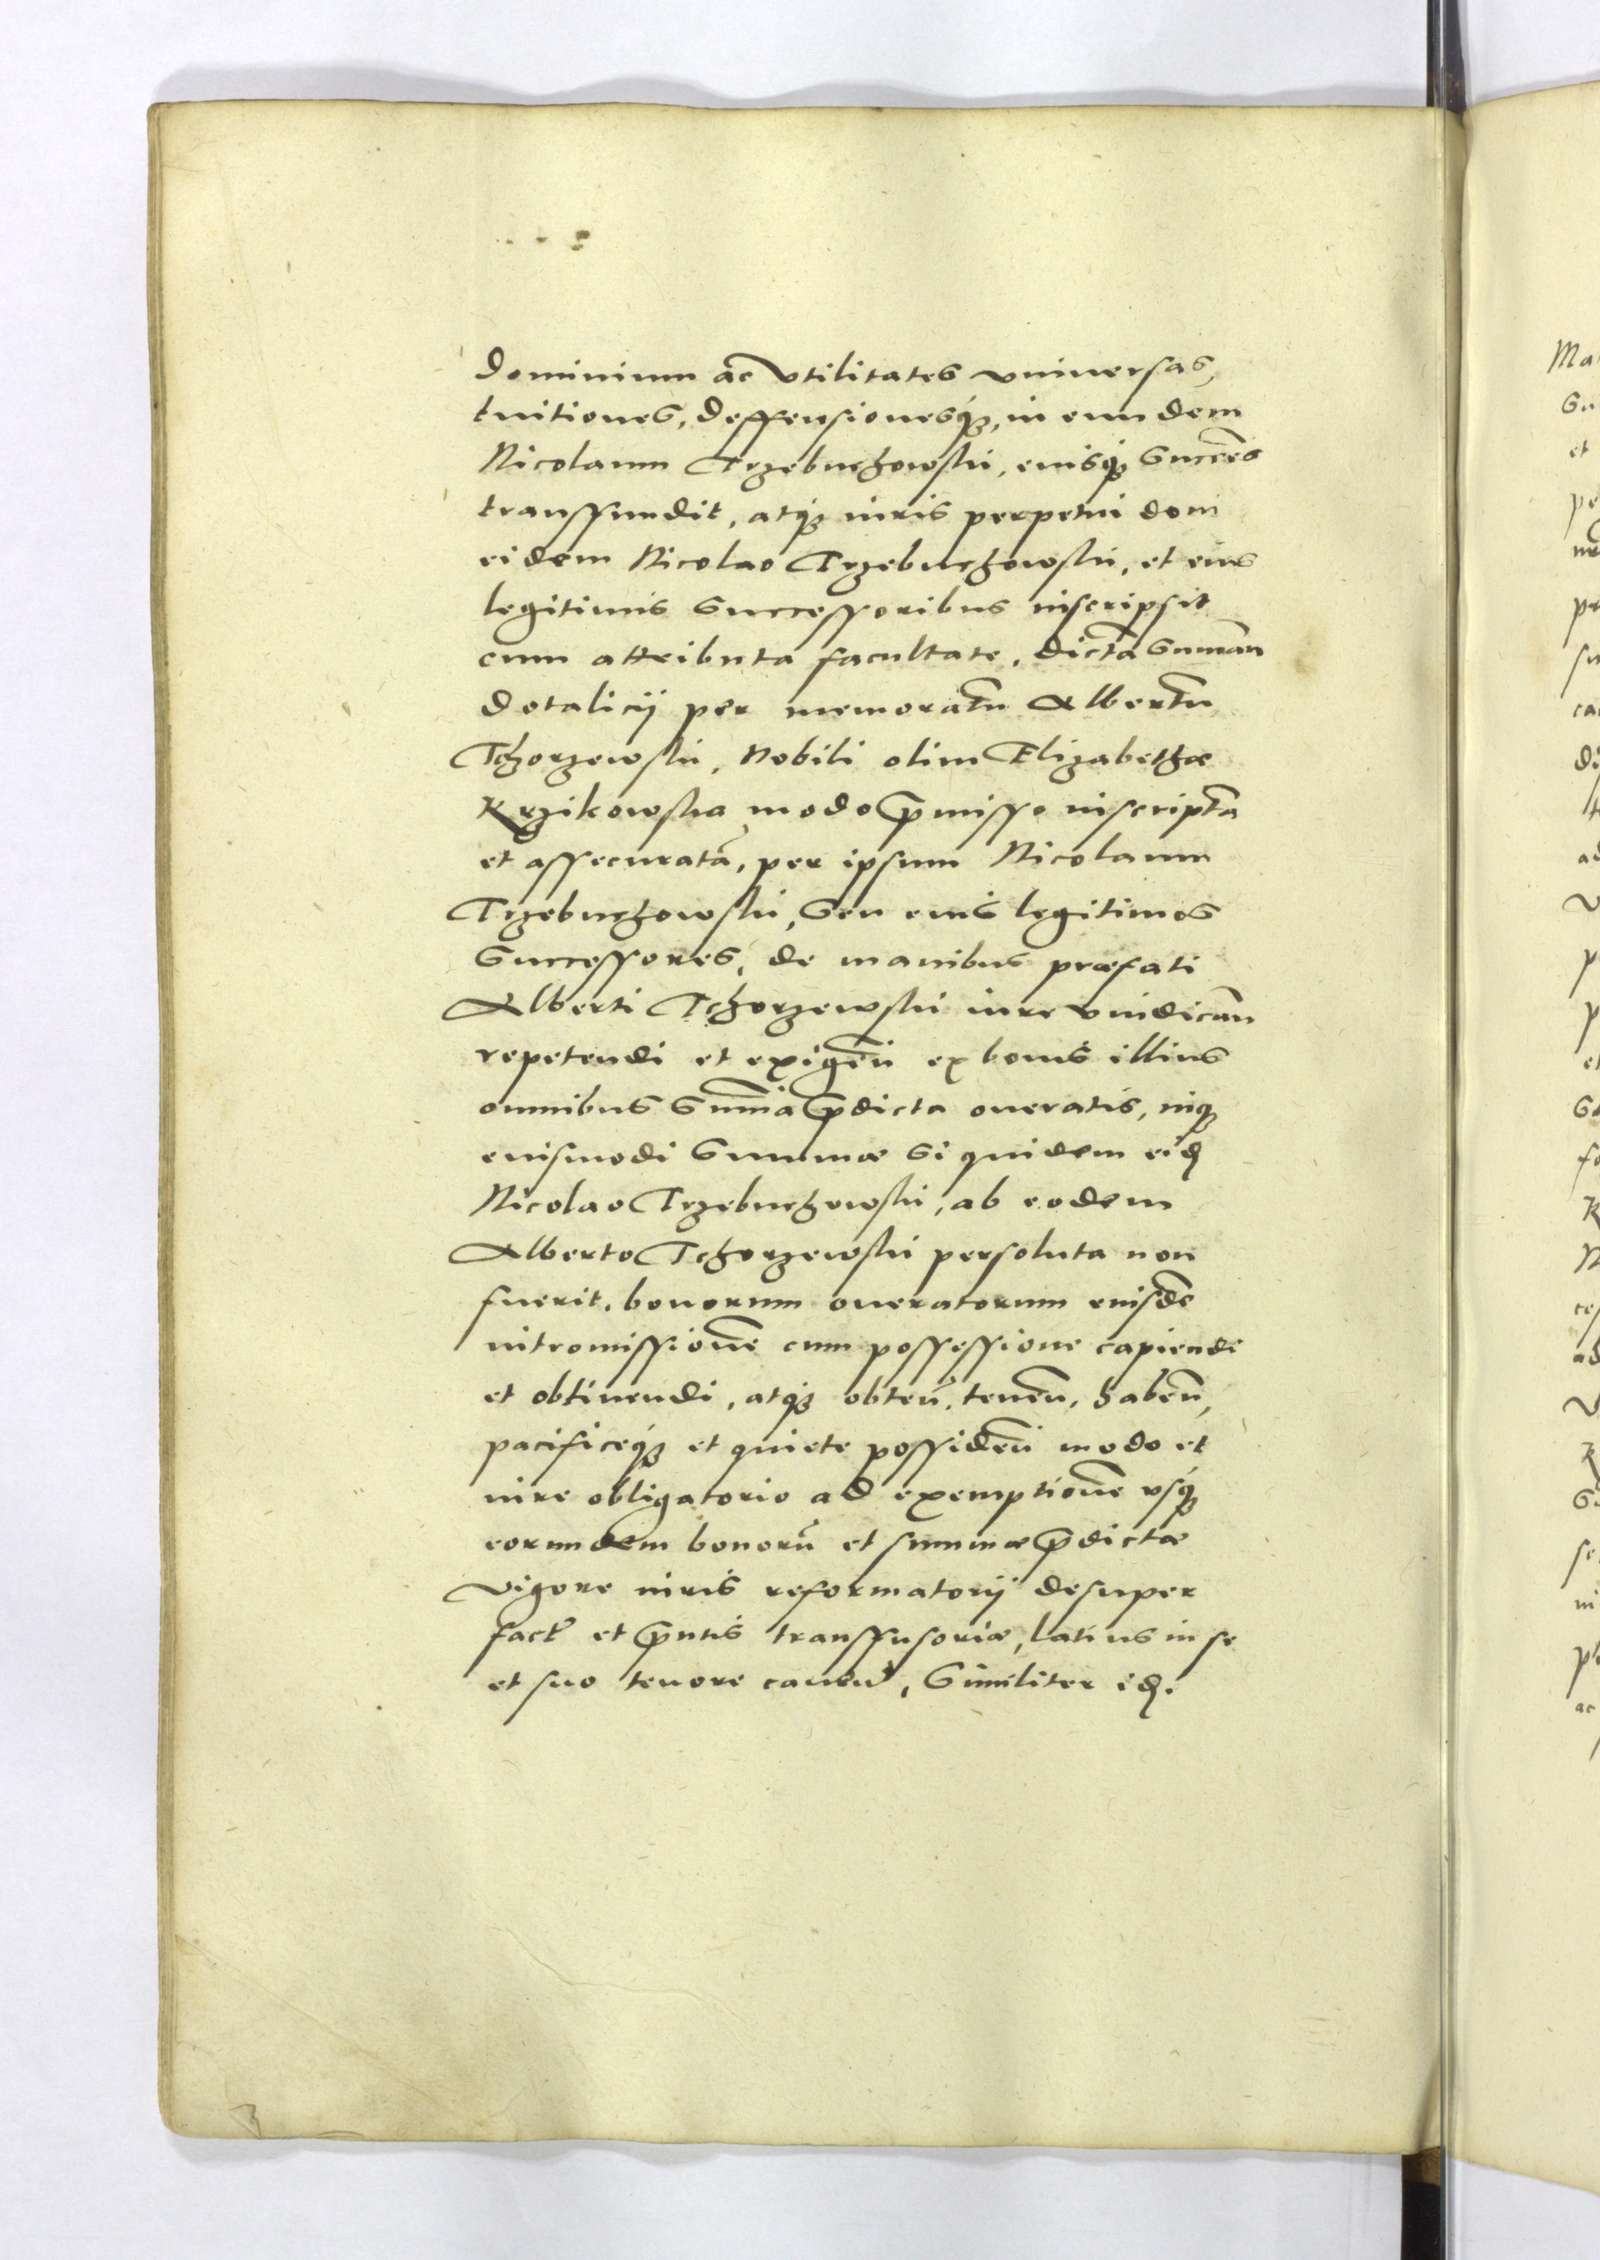 dominium ac vtilitates vniuersas,
tuitiones, deffensionesq3, in eundem
Nicolaum Trzebuchowski, eiusq3 Succēs
transfundit, atq3 iuris perpetui doni
eidem Nicolao Trzebuchowski, et eius
legitimis Successoribus inscripsit
cum attributa facultate, dictā Summām
dotalicij per memoratū Albertū
Tchorzewski, Nobili olim Elizabethæ
Krzikowska modo p̄misso inscriptā
et assecuratā, per ipsum Nicolaum
Trzebuchowski, Seu eius legitimos
Successores, de manibus præfati
Alberti Tchorzewski iure vindican̄
repetendi et exigēn ex bonis illius
omnibus Sum̄a p̄dicta oneratis, inq3
euismodi Summæ Si quidem eid
Nicolao Trzebuchowski, ab eodem
Alberto Tchorzewski persoluta non
fuerit, bonorum oneratorum eiusdē
intromissionē cum possessione capiendi
et obtinendi, atq3 obten̄, tenēn, habēn,
pacificeq3 et quiete possidēn modo et
iure obligatorio ad exemptionē vsq3
eorundem bonorū et summæ p̄dictæ
vigore iuris reformatorij desuper
fact et p̄ntis transfusoriæ, latius in se
et suo tenore canen̄, Similiter id.
Ma
et
pe